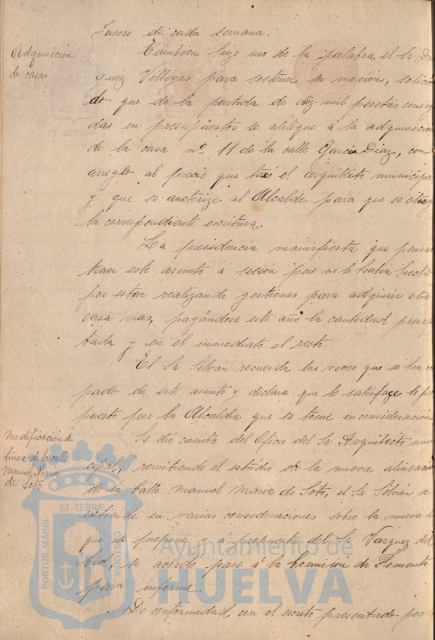 Jueves de cada semana.
Adquisición
de casas
También hizo uso de la palabra el Sr. Do
quez Villegas para sostener su moción,
do que de la partida de diez mil pesetas consig
das en presupuestos se obligue á la adquisición
de la casa nº 11 de la calle García Diaz, con
arreglo al precio que tasó el arquitecto municipa
y que se autorice al Alcalde para que se
la correspondiente escritura.
La presidencia manifiesta que pensa
traer este asunto a sesión pero no lo había hecho
por estar realizando gestiones para adquirir otra
casa mas, pagándose este año la cantidad presu
tada y en el inmediato el resto.
El Sr Silván recuerda las veces que se ha
pado de este asunto y declara que le satisface lo pro
puesto por la Alcaldía que se tome en consideración
Modificación de
línea de la calle
Manuel Maria
de Soto.
Se dió cuenta del Oficio del Sr Arquitecto muni
cipal, remitiendo el estudio de la nueva alineación
de la calle Manuel Maria de Soto, el Sr Silván
en varias consideraciones sobre la nueva
que se propone y a propuesta del Sr Vazquez del
se acordó pase á la Comisión de Fomento
para informe.
De conformidad con el escrito presentado por
PORTUS MARIS
ET TERRE
CUSTODIA
Ayuntamiento de
HUELVA